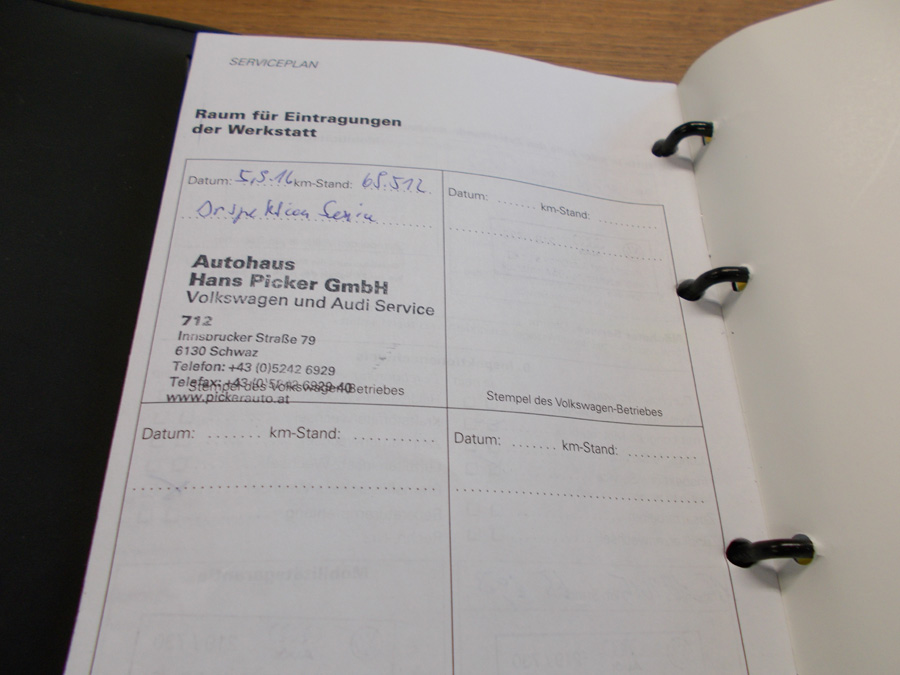 SERVICEPLAN
Raum für Eintragungen
der Werkstatt
Datum: 5.9.16 km-Stand: 69.512
Service
Autohaus
Hans Picker GmbH
Volkswagen und Audi Service
712
Innsbrucker Straße 79
6130 Schwaz
Telefon: +43 (0)5242 6929
Telefax: +43 (0)5242 6929-40
Stempel des Volkswagen-Betriebes
www.pickerauto.at
Datum: ....... km-Stand: ...........
Stempel des Volkswagen-Betriebes
Datum: ....... km-Stand: ...........
Datum: ....... km-Stand: ...........